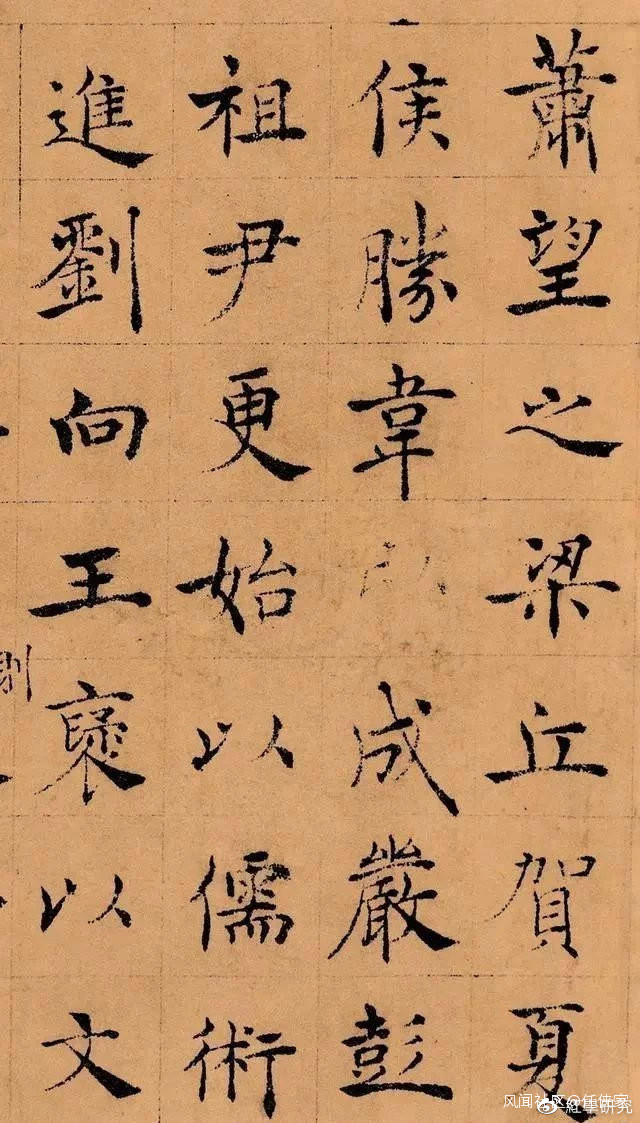 蕭望之梁丘賀夏
侯勝韋成嚴彭
祖尹更始以儒術
進劉向王褒以文
风闻社区@